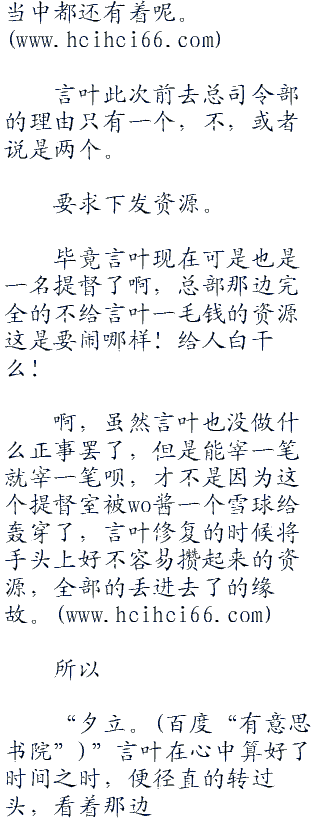 当中都还有着呢。
(www.hcihci66.com)
言叶此次前去总司令部
的理由只有一个，不，或者
说是两个。
要求下发资源。
毕竟言叶现在可是也是
一名提督了啊，总部那边完
全的不给言叶一毛钱的资源
这是要闹哪样！给人白干
么！
啊，虽然言叶也没做什
么正事罢了，但是能宰一笔
就宰一笔呗，才不是因为这
个提督室被wo酱一个雪球给
轰穿了，言叶修复的时候将
手头上好不容易攒起来的资
源，全部的丢进去了的缘
故。(www.hcihci66.com)
所以
“夕立。(百度“有意思
书院”)”言叶在心中算好了
时间之时，便径直的转过
头，看着那边